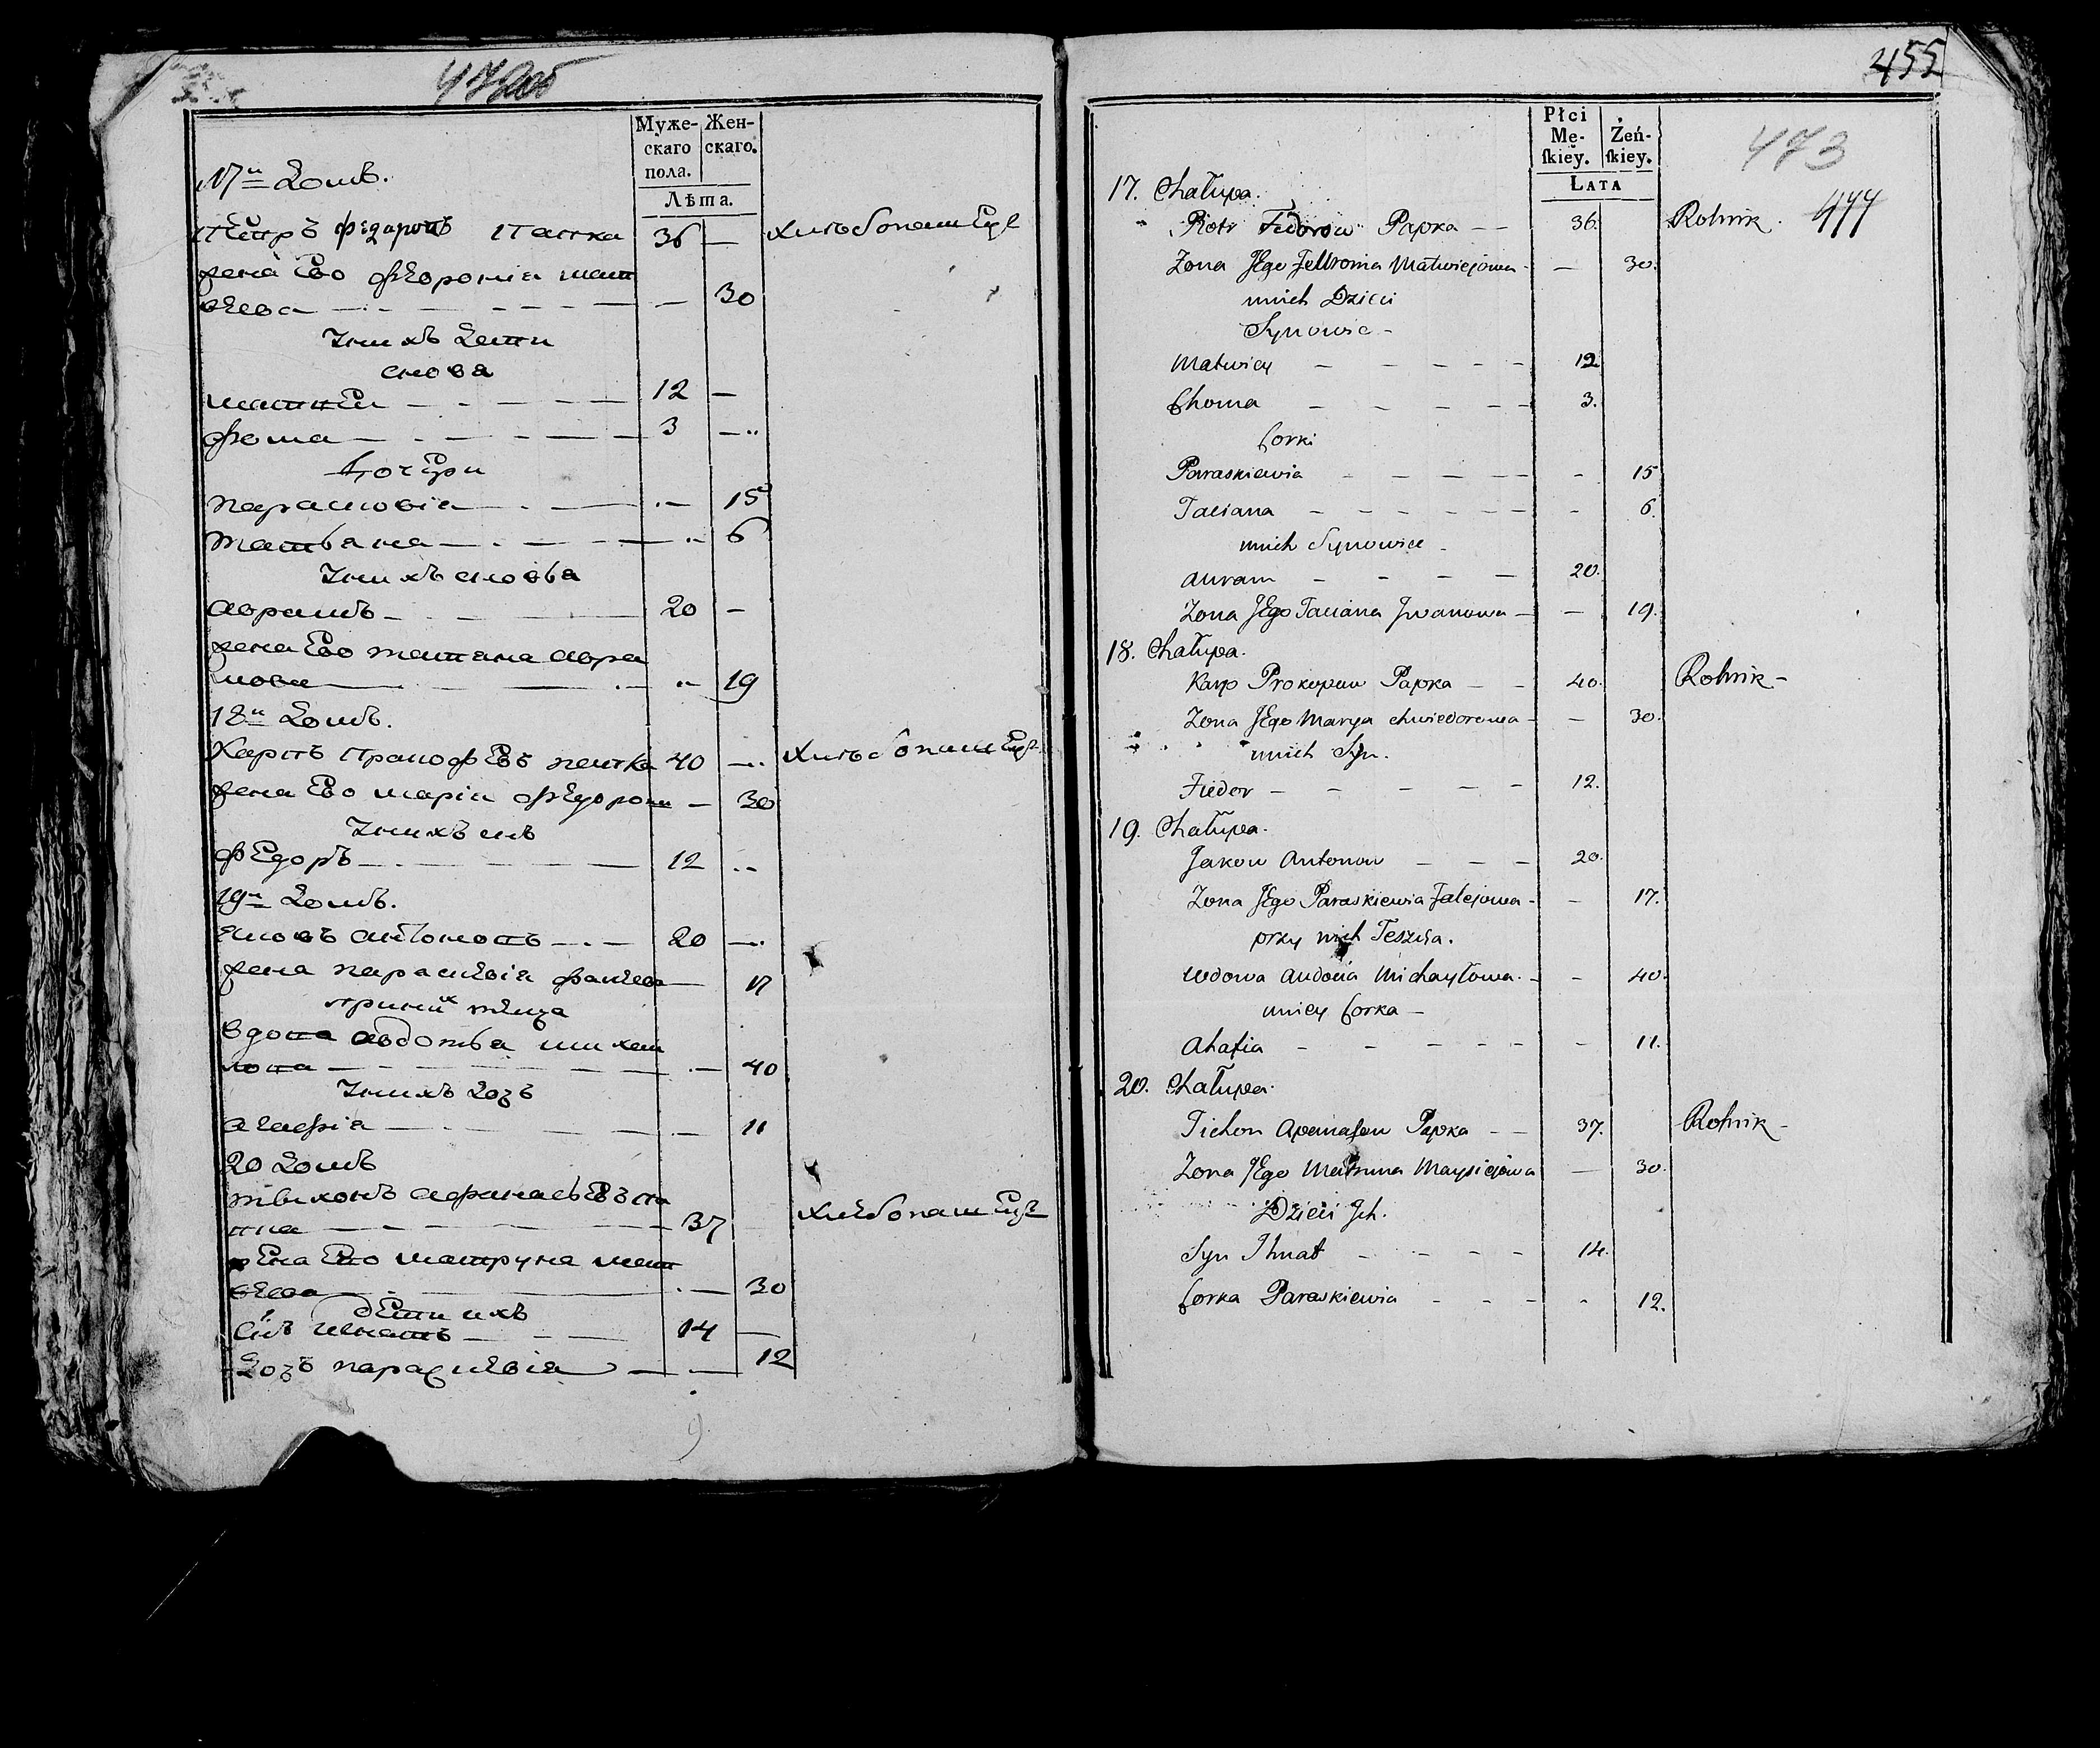 472об
Муже-
скаго
пола.
Жен-
скаго.
Лѣта.
17й Домъ.
Петръ Федаровъ Папка 36 — хлѣбопашецъ
жена Ево Февронiя мат
вѣева — 30
У них детй
снова
матвей 12 —
Фома 3 —
Дочери
парасковiя — 15
татьяна — 6
У нихъ снова
аврамъ 20 —
жена Ево татяна авра
мова — 19
18й Домъ.
Карпъ Пракофевъ папка 40 — хлѣбопашецъ
жена Ево марiя федорова — 30
У нихъ снъ
федоръ 12 —
19й Домъ.
Яковъ антоновъ 20 —
жена параскѣвiя фалѣева — 17
при них тѣща
вдова авдотья михаи
лова — 40
У нихъ дочъ
агафiя — 11
20 Домъ
тихонъ афанасьевъ па
пка 37 хлѣбопашецъ
жена Ево матруна мат
вѣева — 30
дети ихъ
Снъ игнатъ 14 —
Дочъ параскѣвiя — 12
455
473
477
Płci
Mę-
ſkiey.
Żeń-
ſkiey.
Lata
17. Chałupa.
Piotr Fedorow Papka — — 36. Rolnik.
Zona Jego Fewronia Matwiejowa — — 30.
unich Dzieci
Synowie —
Matwiey — — — — — 12
Choma — — — — — 3.
Corki
Paraskiewia — — — — — - 15
Taciana — — — — — — - 6.
unich Synowiec -
Auram — — — — 20.
Zona Jego Taciana Jwanowa — — 19.
18. Chałupa.
Karp Prokopow Papka — — 40. Rolnik —
Zona Jego Marya Chwiedorowa — — 30.
unich Syn.
Fiedor — — — — — 12.
19. Chałupa.
Jakow Antonow — — — 20.
Zona Jego Paraskiewia Falejowa — — 17.
przy nich Teszcza.
wdowa Audocia Michayłowa. — - 40.
uniey Corka —
Ahafia — — — — — - 11.
20. Chałupa.
Tichon Apanasow Papka — — 37. Rolnik —
Zona Jego Matruna Maysiejowa — 30.
Dzieci Jch.
Syn Ihnat — — — — 14.
Corka Paraskiewia — — — - 12.